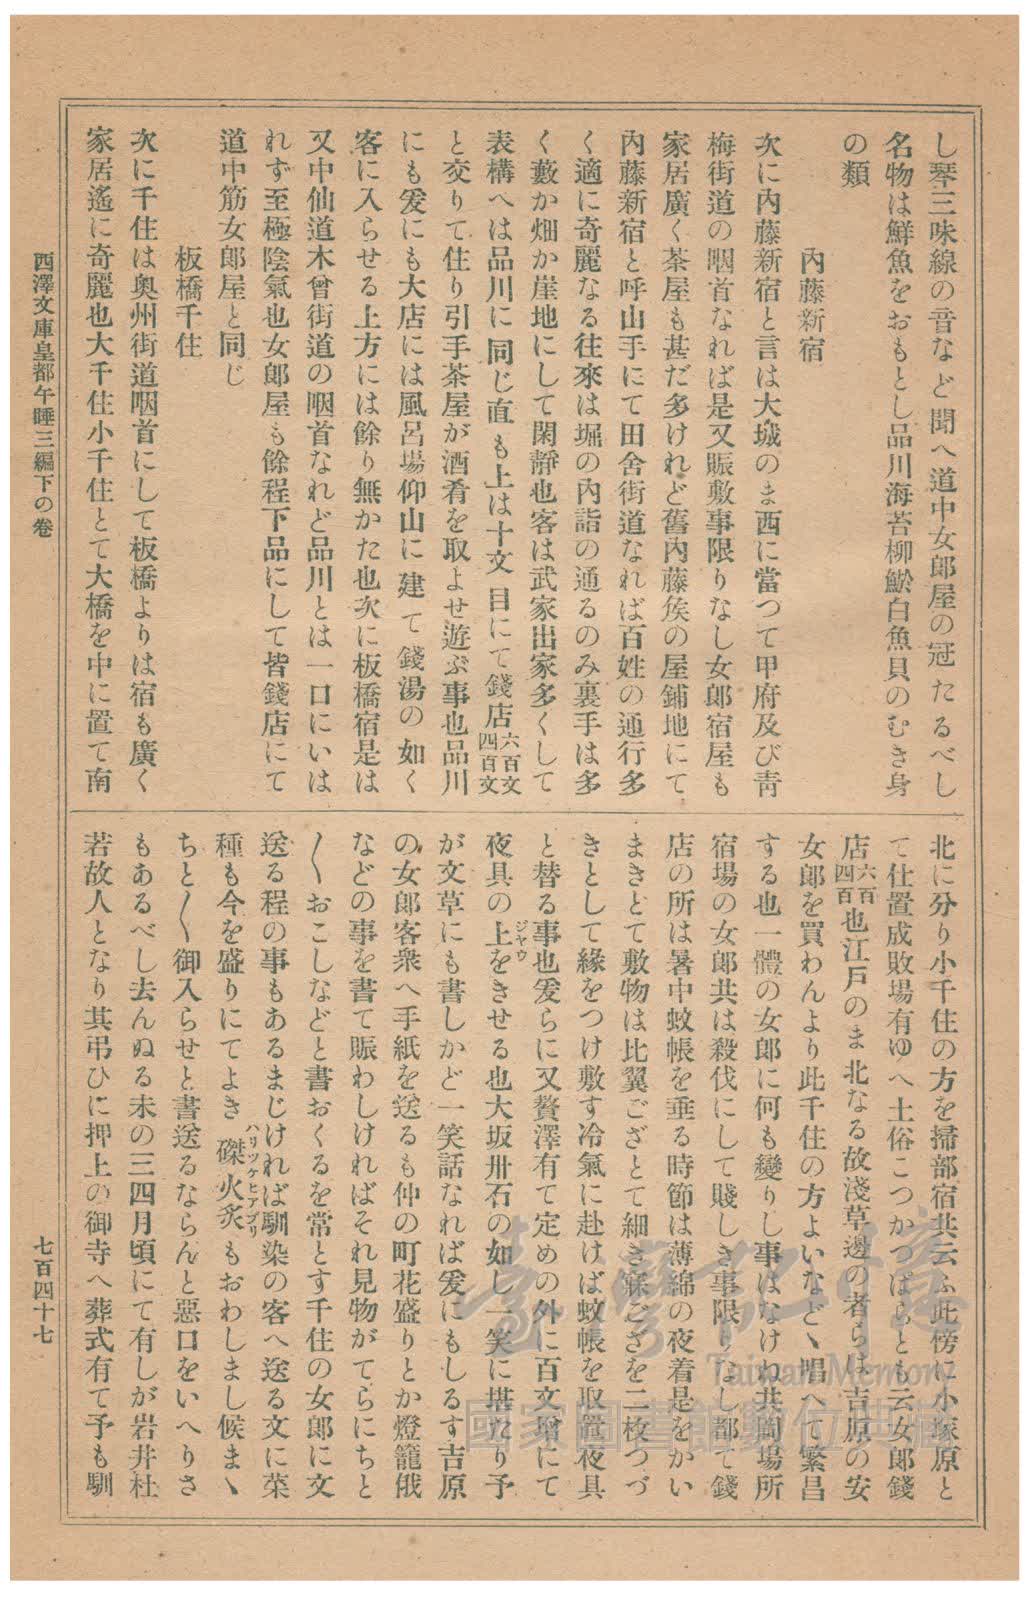 し琴三味線の音など聞へ道中女郎屋の冠たるべし
名物は鮮魚をおもとし品川海苔柳鮻白魚貝のむき身
の類
内藤新宿
次に内藤新宿と言は大城のま西に當つて甲府及び靑
梅街道の咽首なれば是又賑敷事限りなし女郎宿屋も
家居廣く茶屋も甚だ多けれど舊内藤矦の屋鋪地にて
内藤新宿と呼山手にて田舍街道なれば百姓の通行多
く適に奇麗なる往來は堀の内詣の通るのみ裏手は多
く藪か畑か崖地にして閑靜也客は武家出家多くして
表構へは品川に同じ直も上は十文目にて錢店六百文四百文
と交りて住り引手茶屋が酒肴を取よせ遊ぶ事也品川
にも爰にも大店には風呂場仰山に建て錢湯の如く
客に入らせる上方には餘り無かた也次に板橋宿是は
又中仙道木曾街道の咽首なれど品川とは一口にいは
れず至極陰氣也女郎屋も餘程下品にして皆錢店にて
道中筋女郎屋と同じ
板橋千住
次に千住は奥州街道咽首にして板橋よりは宿も廣く
家居遙に奇麗也大千住小千住とて大橋を中に置て南
北に分り小千住の方を掃部宿共云ふ此傍に小塚原と
て仕置成敗場有ゆへ土俗こつかつぱらとも云女郎錢
店六百四百也江戸のま北なる故淺草邊の者らは吉原の安
女郎を買わんより此千住の方よいなどゝ唱へて繁昌
する也一體の女郎に何も變りし事はなけね共岡場所
宿場の女郎共は殺伐にして賤しき事限りなし都て錢
店の所は暑中蚊帳を垂る時節は薄綿の夜着是をかい
まきとて敷物は比翼ござとて細き寐ござを二枚つづ
きとして緣をつけ敷す冷氣に赴けば蚊帳を取置夜具
と替る事也爰らに又贅澤有て定めの外に百文增にて
夜具の上ジヤウをきせる也大坂卅石の如し一笑に堪たり予
が文草にも書しかど一笑話なれば爰にもしるす吉原
の女郎客衆へ手紙を送るも仲の町花盛りとか燈籠俄
などの事を書て賑わしければそれ見物がてらにちと
〳〵おこしなどと書おくるを常とす千住の女郎に文
送る程の事もあるまじければ馴染の客へ送る文に菜
種も今を盛りにてよき磔ハリツケ火炙ヒアブリもおわしまし候まゝ
ちと〳〵御入らせと書送るならんと惡口をいへりさ
もあるべし去んぬる未の三四月頃にて有しが岩井杜
若故人となり其弔ひに押上の御寺へ葬式有て予も馴
西澤文庫皇都午睡三編下の卷
七百四十七
臺灣記憶
Taiwan Memory
國家圖書館數位典藏